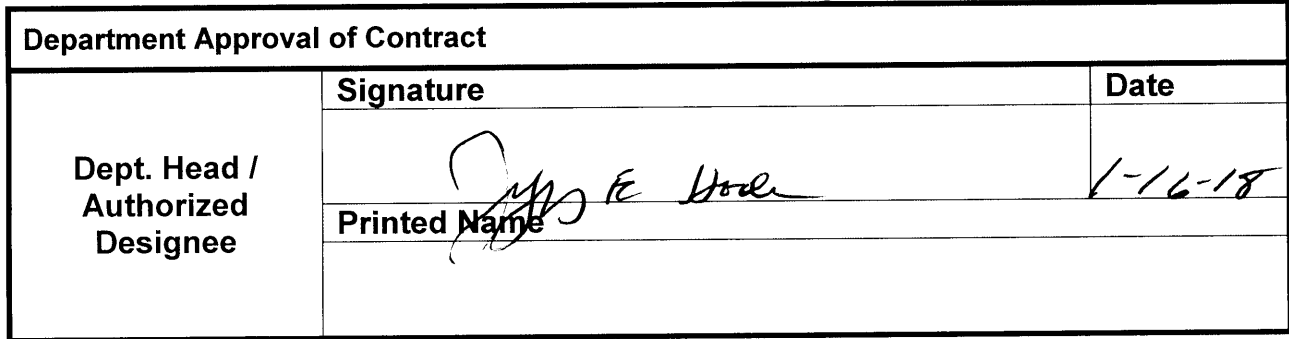 Department Approval of Contract
Signature
Date
Dept. Head /
Authorized
Designee
E
1-16-18
Printed Name